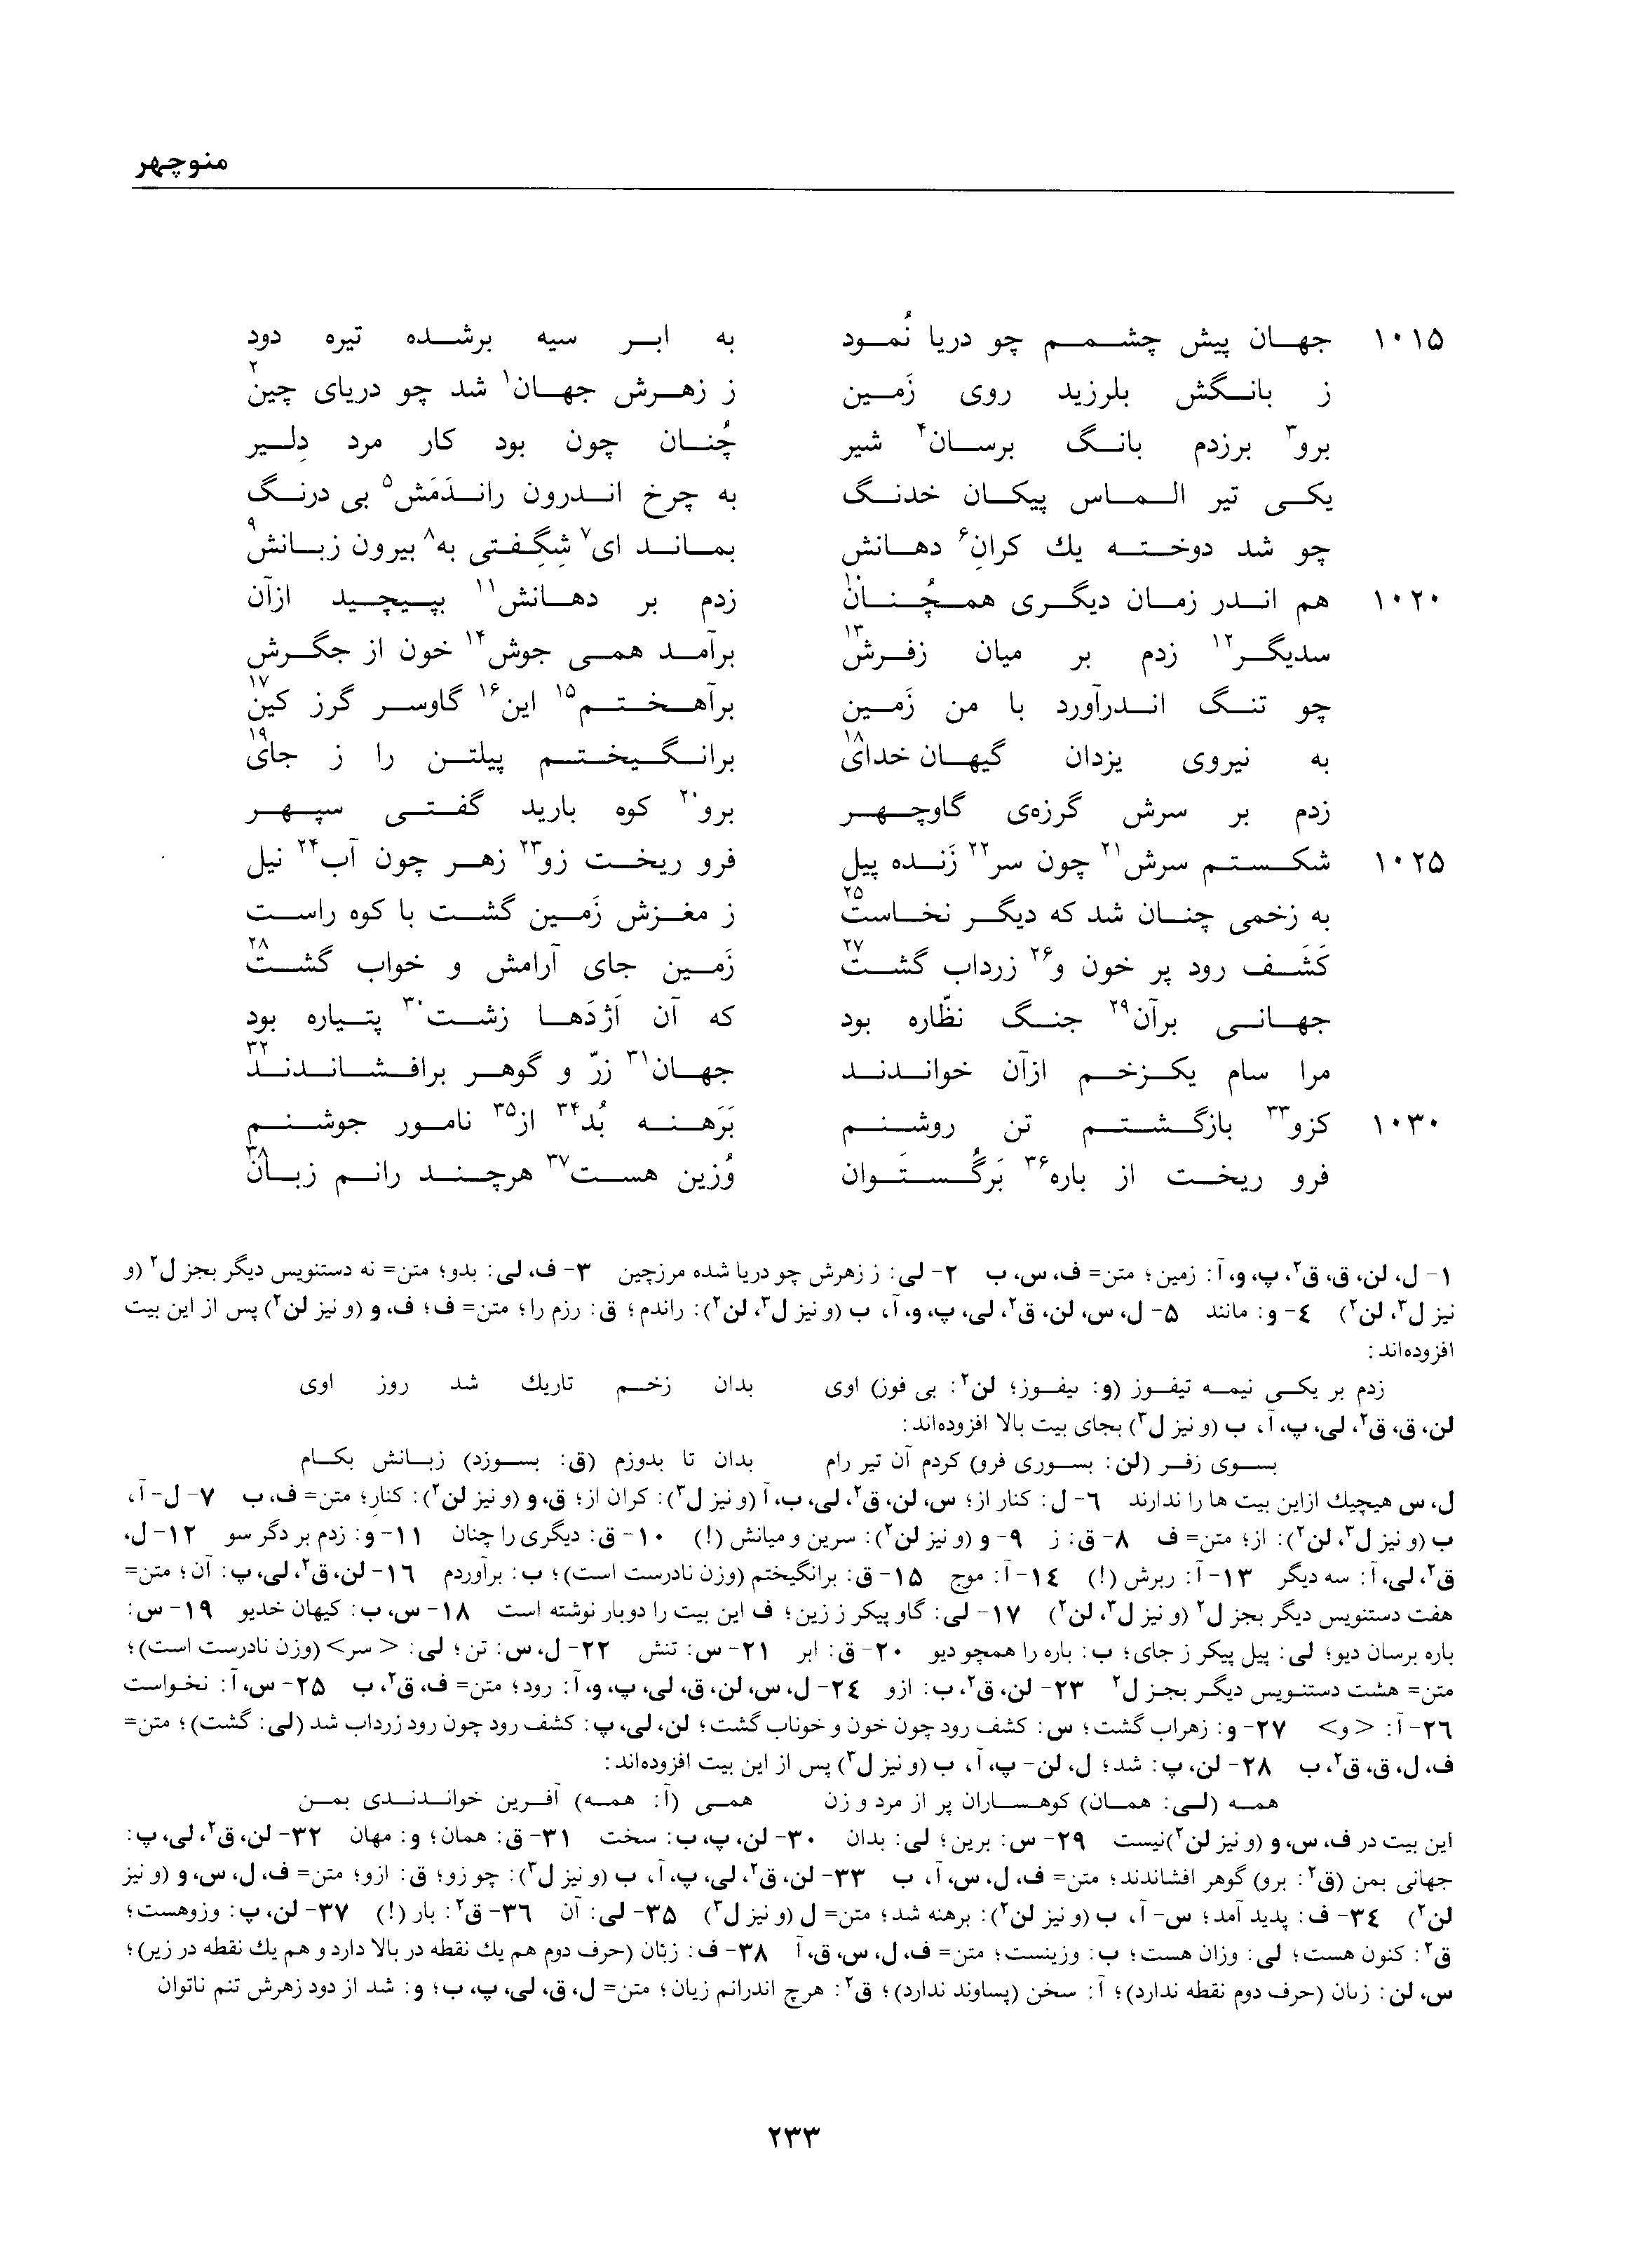 منوچهر
١٠١٥ جهان پیش چشمم چو دریا نُمود به ابر سیه برشده تیره دود
ز بانگش بلرزید روی زَمین ز زهرش جهان١ شد چو دریای چین٢
برو٣ برزدم بانگ برسان۴ شیر چُنان چون بود کار مرد دِلیر
یکی تیر الماس پیکان خدنگ به چرخ اندرون راندَمَش۵ بی درنگ
چو شد دوخته یك کرانِ۶ دهانش بماند ای٧ شِگِفتی به٨ بیرون زبانش٩
١٠٢٠ هم اندر زمان دیگری همچُنان١٠ زدم بر دهانش١١ بپیچید ازآن
سدیگر١٢ زدم بر میان زفرش١٣ برآمد همی جوش١۴ خون از جگرش
چو تنگ اندرآورد با من زَمین برآهختم١۵ این١۶ گاوسر گرز کین١٧
به نیروی یزدان گیهان خدای١٨ برانگیختم پیلتن را ز جای١٩
زدم بر سرش گرزه‌ی گاوچهر برو٢٠ کوه بارید گفتی سپهر
١٠٢٥ شکستم سرش٢١ چون سر٢٢ زَنده پیل فرو ریخت زو٢٣ زهر چون آب٢۴ نیل
به زخمی چنان شد که دیگر نخاست٢۵ ز مغزش زَمین گشت با کوه راست
کَشَف رود پر خون و٢۶ زرداب گشت٢٧ زَمین جای آرامش و خواب گشت٢٨
جهانی برآن٢٩ جنگ نظّاره بود که آن اَژدَها زشت٣٠ پتیاره بود
مرا سام یکزخم ازآن خواندند جهان٣١ زرّ و گوهر برافشاندند٣٢
١٠٣٠ کزو٣٣ بازگشتم تن روشنم بَرَهنه بُد٣۴ از٣۵ نامور جوشنم
فرو ریخت از باره٣۶ بَرگُستَوان وُزین هست٣٧ هرچند رانم زبان٣٨
١- ل، لن، ق، ق٢، پ، و، آ: زمین؛ متن= ف، س، ب ٢- لی: ز زهرش چو دریا شده مرزچین ٣- ف، لی: بدو؛ متن= نه دستنویس دیگر بجز ل٢ (و
نیز ل٣، لن٢) ٤- و: مانند ۵- ل، س، لن، ق٢، لی، پ، و، آ، ب (و نیز ل٣، لن٢): راندم؛ ق: رزم را؛ متن= ف؛ ف، و (و نیز لن٢) پس از این بیت
افزوده‌اند:
زدم بر یکی نیمه تیفوز (و: بیفوز؛ لن٢: بی فوز) اوی بدان زخم تاریك شد روز اوی
لن، ق، ق٢، لی، پ، آ، ب (و نیز ل٣) بجای بیت بالا افزوده‌اند:
بسوی زفر (لن: بسوری فرو) کردم آن تیر رام بدان تا بدوزم (ق: بسوزد) زبانش بکام
ل، س هیچیك ازاین بیت ها را ندارند ٦- ل: کنار از؛ س، لن، ق٢، لی، ب، آ (و نیز ل٣): کران از؛ ق، و (و نیز لن٢): کنار؛ متن= ف، ب ٧- ل- آ،
ب (و نیز ل٣، لن٢): از؛ متن= ف ٨- ق: ز ٩- و (و نیز لن٢): سرین و میانش (!) ١٠- ق: دیگری را چنان ١١- و: زدم بر دگر سو ١٢- ل،
ق٢، لی، آ: سه دیگر ١٣- آ: ربرش (!) ١٤- آ: موج ١۵- ق: برانگیختم (وزن نادرست است)؛ ب: برآوردم ١٦- لن، ق٢، لی، پ: آن؛ متن=
هفت دستنویس دیگر بجز ل٢ (و نیز ل٣، لن٢) ١٧- لی: گاو پیکر ز زین؛ ف این بیت را دوبار نوشته است ١٨- س، ب: کیهان خدیو ١٩- س:
باره برسان دیو؛ لی: پیل پیکر ز جای؛ ب: باره را همچو دیو ٢٠- ق: ابر ٢١- س: تنش ٢٢- ل، س: تن؛ لی: <سر> (وزن نادرست است)؛
متن= هشت دستنویس دیگر بجز ل٢ ٢٣- لن، ق٢، ب: ازو ٢٤- ل، س، لن، ق، لی، پ، و، آ: رود؛ متن= ف، ق٢، ب ٢۵- س، آ: نخواست
٢٦- آ: <و> ٢٧- و: زهراب گشت؛ س: کشف رود چون خون و خوناب گشت؛ لن، لی، پ: کشف رود چون رود زرداب شد (لی: گشت)؛ متن=
ف، ل، ق، ق٢، ب ٢٨- لن، پ: شد؛ ل، لن- پ، آ، ب (و نیز ل٣) پس از این بیت افزوده‌اند:
همه (لی: همان) کوهساران پر از مرد و زن همی (آ: همه) آفرین خواندندی بمن
این بیت در ف، س، و (و نیز لن٢)نیست ٢٩- س: برین؛ لی: بدان ٣٠- لن، پ، ب: سخت ٣١- ق: همان؛ و: مهان ٣٢- لن، ق٢، لی، پ:
جهانی بمن (ق٢: برو) گوهر افشاندند؛ متن= ف، ل، س، آ، ب ٣٣- لن، ق٢، لی، پ، آ، ب (و نیز ل٣): چو زو؛ ق: ازو؛ متن= ف، ل، س، و (و نیز
لن٢) ٣٤- ف: پدید آمد؛ س- آ، ب (و نیز لن٢): برهنه شد؛ متن= ل (و نیز ل٣) ٣۵- لی: آن ٣٦- ق٢: بار (!) ٣٧- لن، پ: وزوهست؛
ق٢: کنون هست؛ لی: وزان هست؛ ب: وزینست؛ متن= ف، ل، س، ق، آ ٣٨- ف: زبان (حرف دوم هم یك نقطه در بالا دارد و هم یك نقطه در زیر)؛
س، لن: زٮان (حرف دوم نقطه ندارد)؛ آ: سخن (پساوند ندارد)؛ ق٢: هرچ اندرانم زیان؛ متن= ل، ق، لی، پ، ب؛ و: شد از دود زهرش تنم ناتوان
٢٣٣